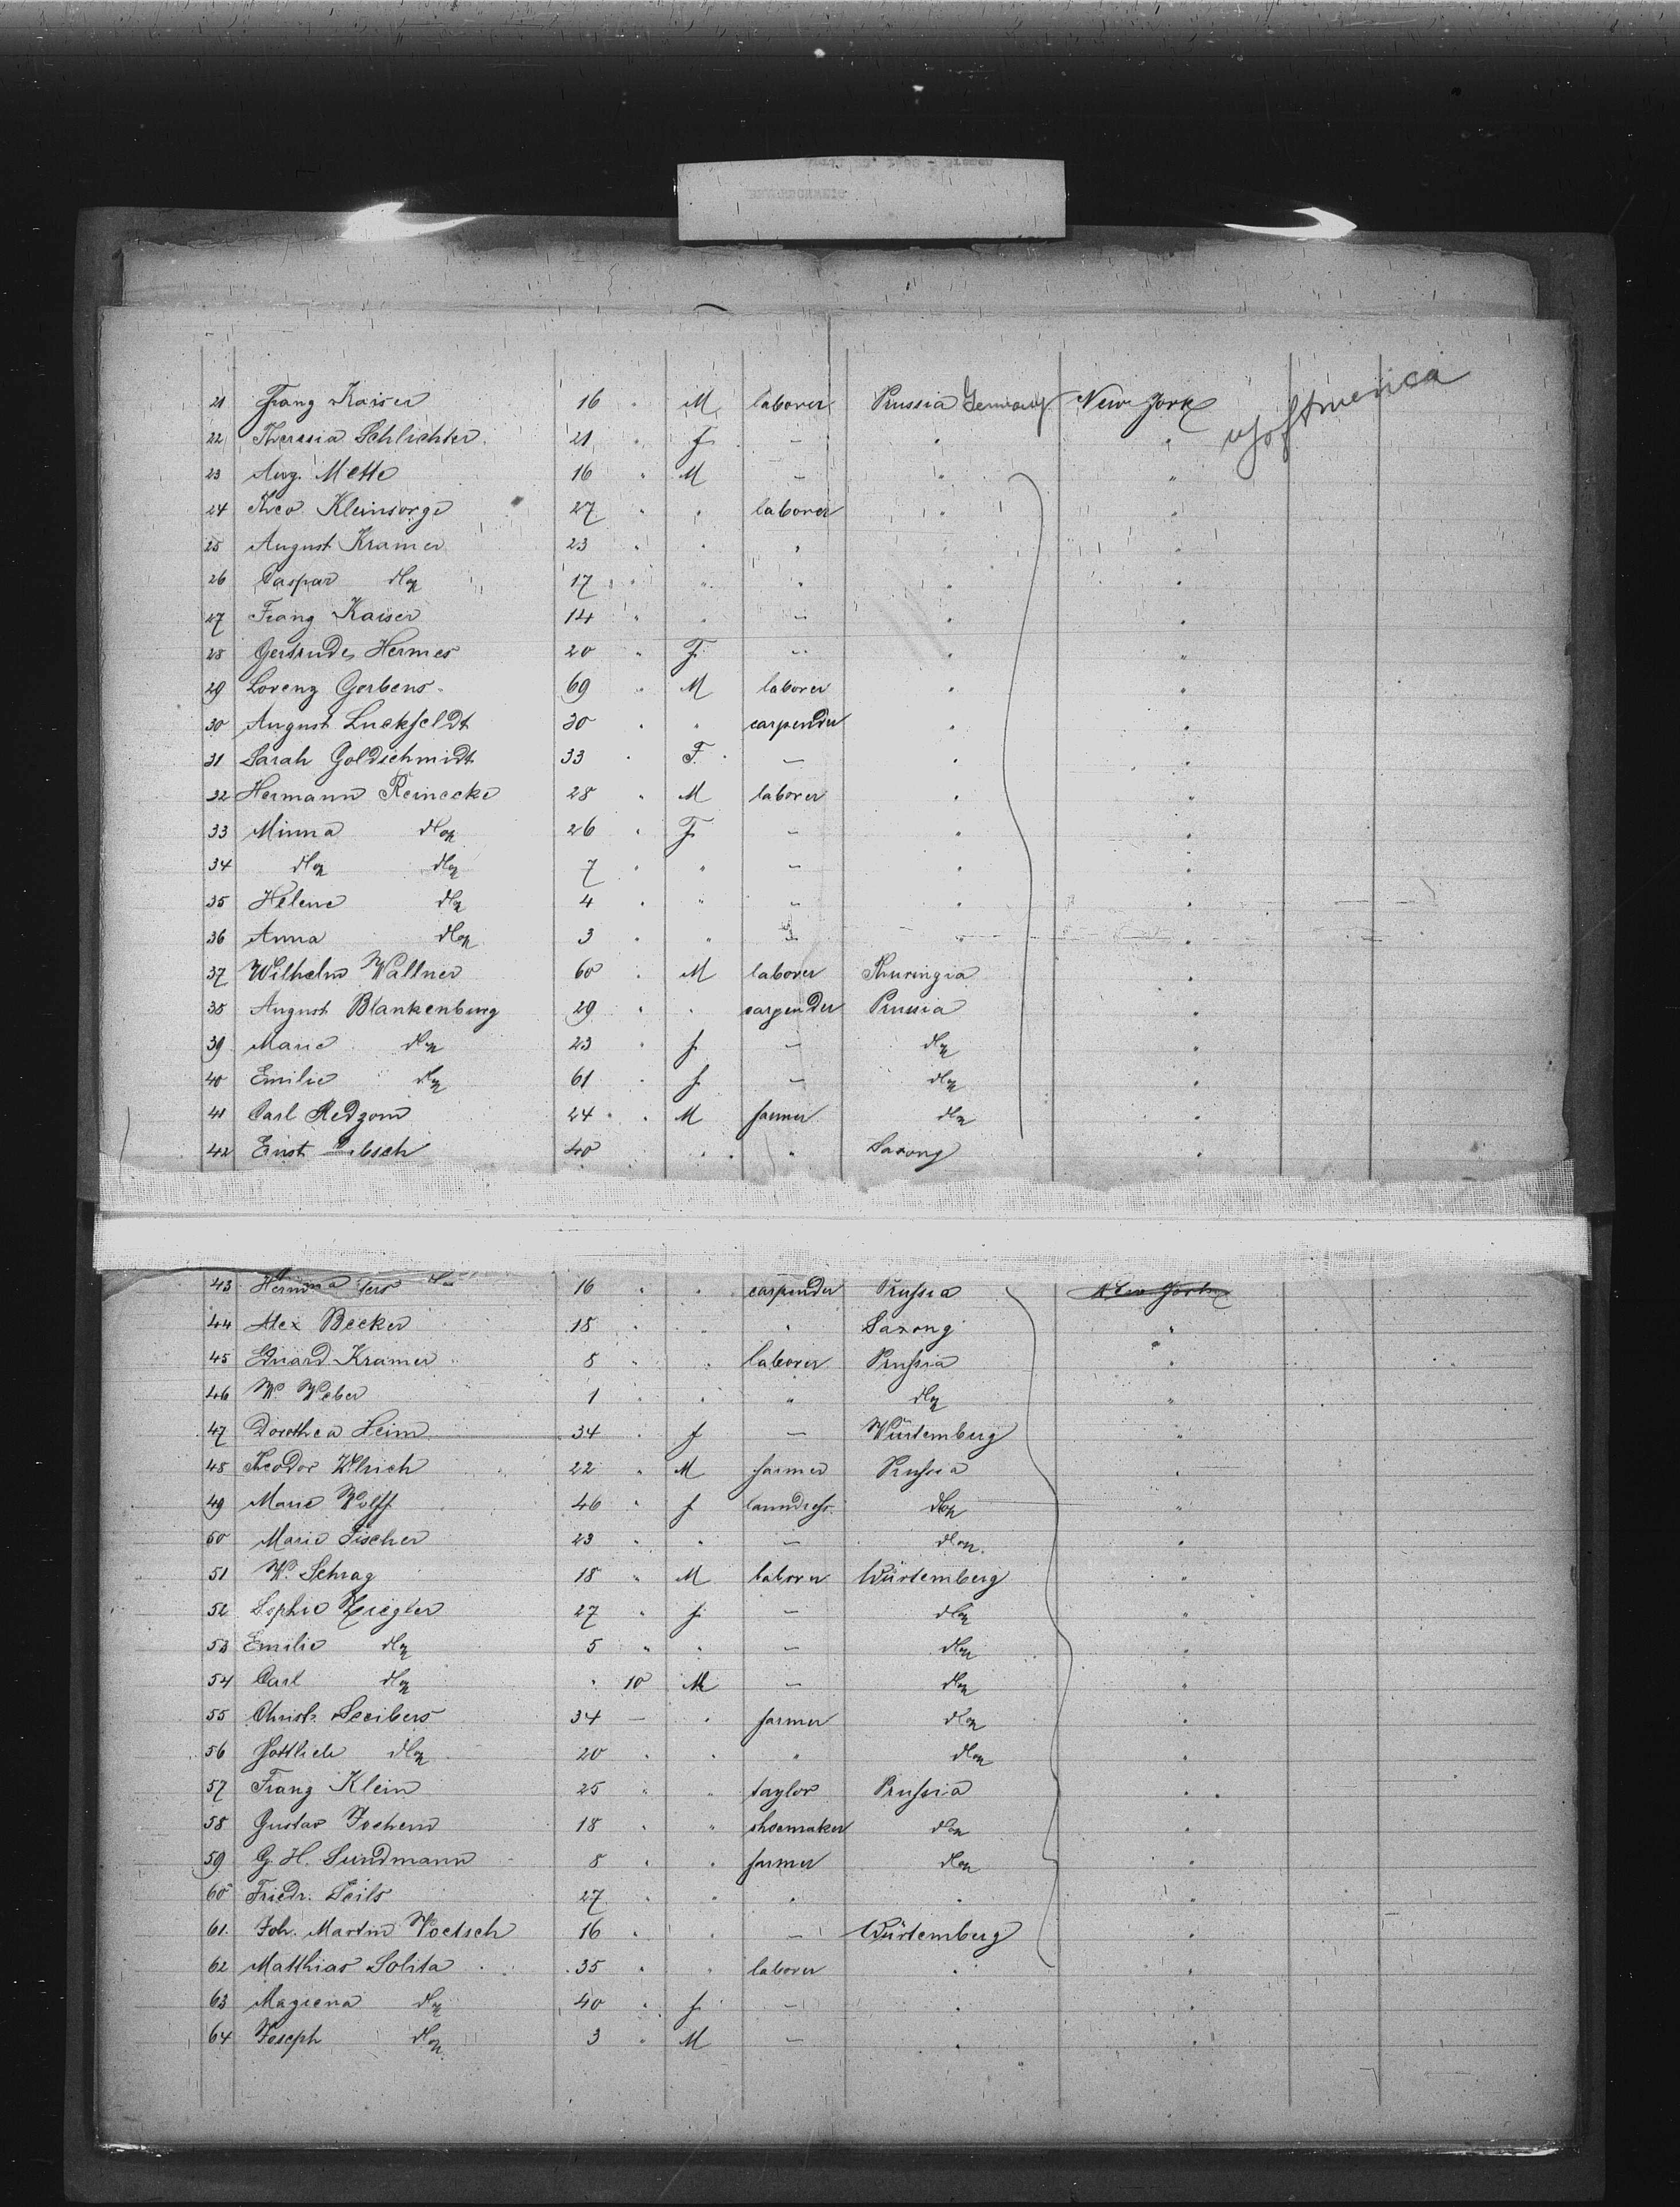 21 Franz Kaiser 16 " M laborer Prussia Germany New York U S of America
22 Theresia Schlichter 21 " f — " "
23 Aug. Mette 16 " M — " "
24 Theo Kleinsorge 27 " " laborer " "
25 August Kramer 23 " " " " "
26 Caspar do 17 " " " " "
27 Franz Kaiser 14 " " — " "
28 Gertrude Hermes 20 " F — " "
29 Lorenz Gerbens 69 " M laborer " "
30 August Luckfeldt 30 " " carpender " "
31 Sarah Goldschmidt 33 " F. — " "
32 Hermann Reinecke 28 " M laborer " "
33 Minna do 26 " F — " "
34 do do 7 " " — " "
35 Helene do 4 " " — " "
36 Anna do 3 " " — " "
37 Wilhelm Wallner 60 " M laborer Thuringia "
38 August Blankenburg 29 " " carpender Prussia "
39 Marie do 23 " f — do "
40 Emilie do 61 " f — do "
41 Carl 24 " " M farmer do "
42 Ernst 40 " " " Saxony "
43 16 " " carpender Prussia New York
44 Alex Becker 18 " " " Saxony "
45 Eduard Kramer 8 " " laborer Prussia "
46 W. Weber 1 " " " do "
47 Dorothea Heim 34 " f — Würtemberg "
48 Theodor Ulrich 22 " M farmer Prussia "
49 Marie Wolff 46 " f laundress do "
50 Marie Fischer 23 " " — do "
51 W. Schrag 18 " M laborer Würtemberg "
52 Sophie Ziegler 27 " f — do "
53 Emilie do 5 " " — do "
54 Carl do " 10 M — do "
55 Christ. 34 — " farmer do "
56 Gottlieb do 20 " " " do "
57 Franz Klein 25 " " taylor Prussia "
58 Gustav Jochem 18 " " shoemaker do "
59 G. H. Sundmann 8 " " farmer do "
60 Friedr. Seils 27 " " " " "
61. Joh. Martin Woetsch 16 " " — Würtemberg "
62 Matthias Solita 35 " " laborer " "
63 40 " f — " "
64 Joseph do 3 " M — " "